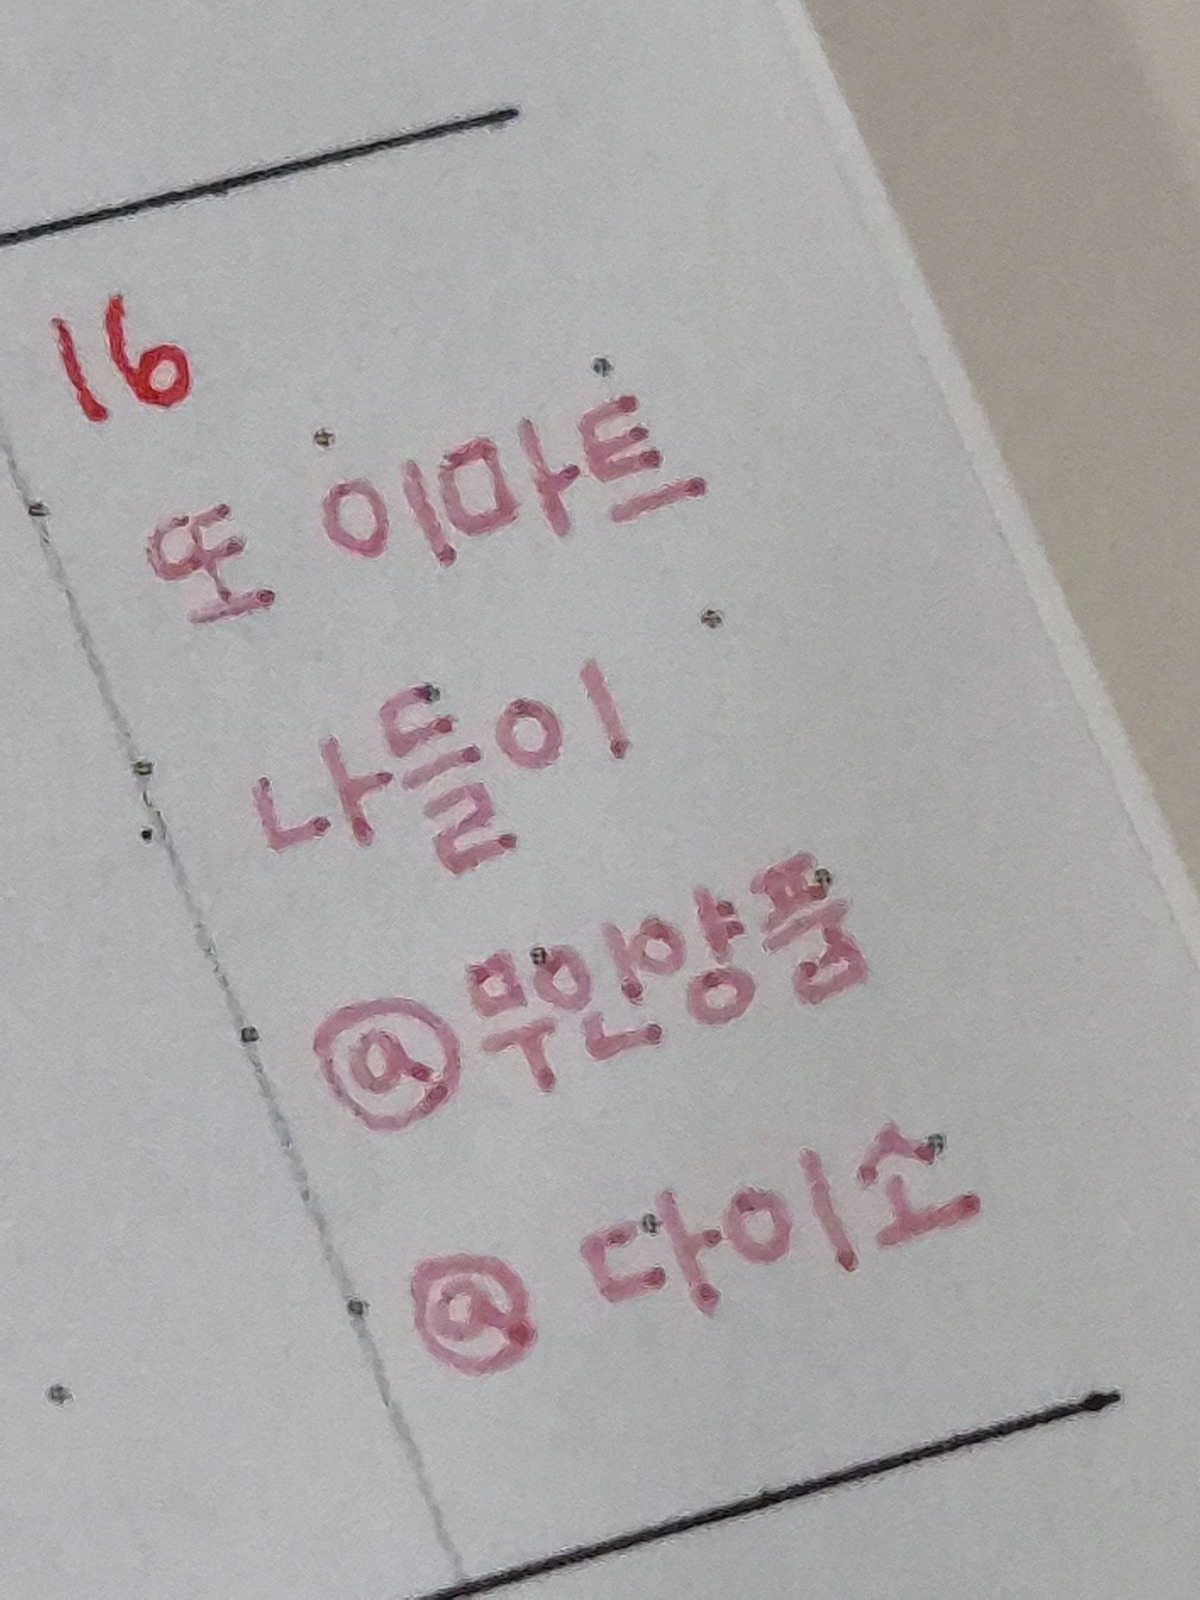 16
또 이마트
나들이
@무인양품
@ 다이소